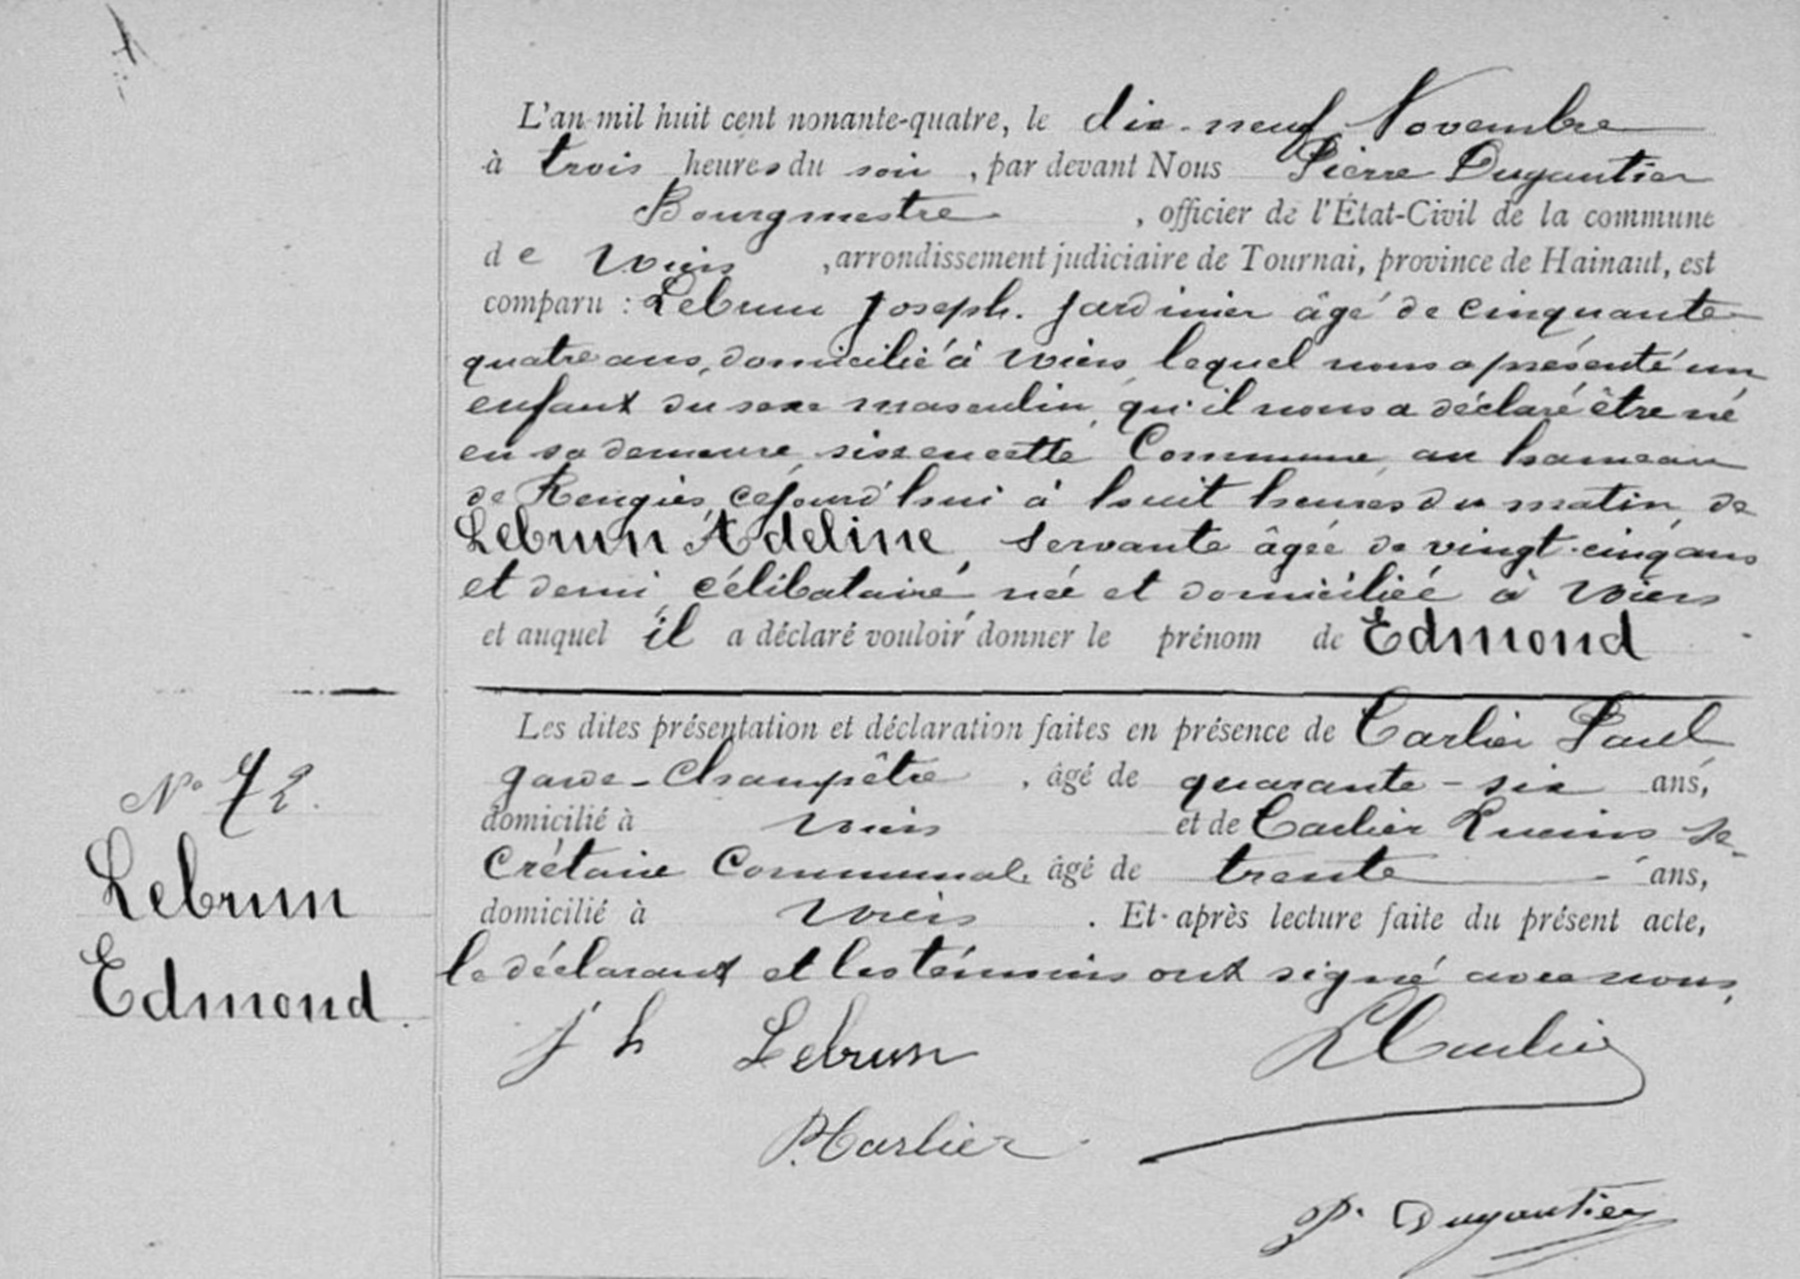 L'an mil huit cent nonante-quatre, le dix-neuf Novembre
à trois heures du soir, par devant Nous Pierre Dugautier
Bourgmestre, officier de l'État-Civil de la commune
de Wiers, arrondissement judiciaire de Tournai, province de Hainaut, est
comparu : Lebrun Joseph. Jardinier âgé de cinquante
quatre ans, domicilié à Wiers, lequel nous a présenté un
enfant du sexe masculin, qu'il nous a déclaré être né
en sa demeure, sise en cette Commune, au hameau
de Rengies, cejourd'hui à huit heures du matin, de
Lebrun Adeline, Servante âgée de vingt-cinq ans
et demi, célibataire, née et domiciliée à Wiers
et auquel il a déclaré vouloir donner le prénom de Edmond
Les dites présentation et déclaration faites en présence de Carlier Paul
garde-Champêtre, âgé de quarante-six ans,
domicilié à Wiers et de Carlier se-
crétaire Communal, âgé de trente ans,
domicilié à Wiers. Et après lecture faite du présent acte,
le déclarant et les témoins ont signé avec nous,
N° 72.
Lebrun
Edmond.
Jh Lebrun
R Carlier
P. Carlier
P. Dugautier